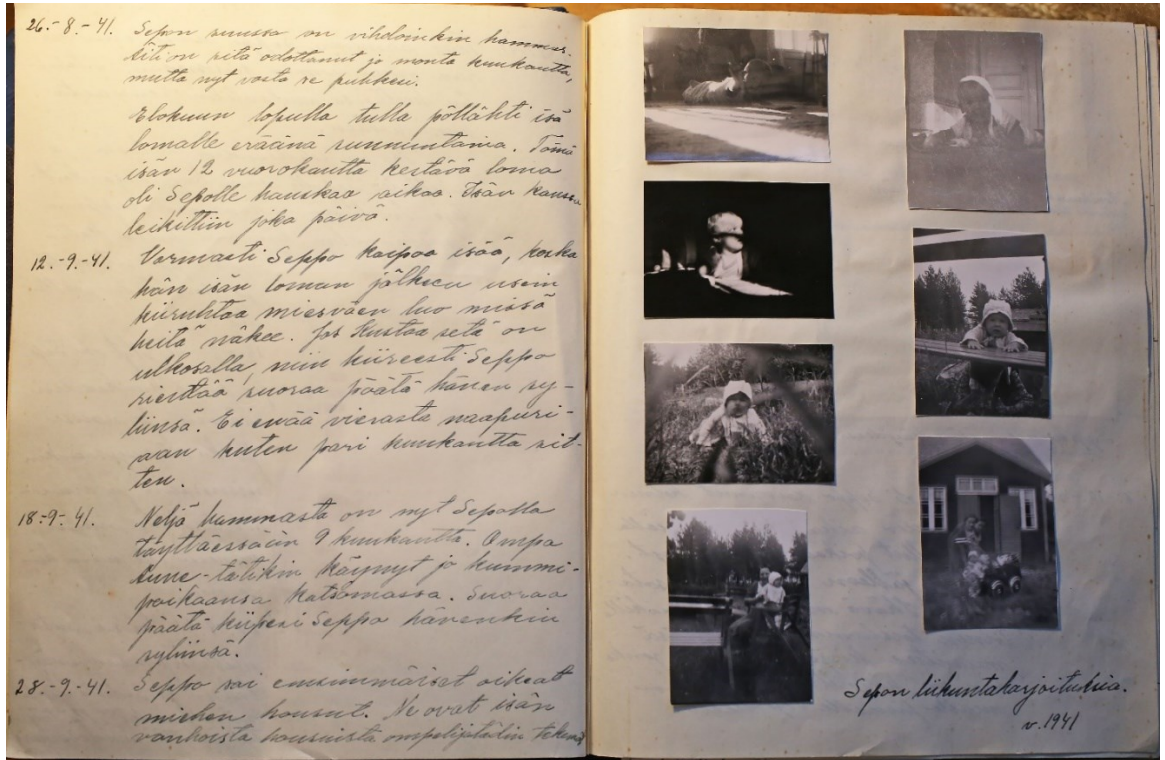 26.-8.-41. Sepon suussa on vihdoinkin hammas.
Äiti on sitä odottanut jo monta kuukautta,
mutta nyt vasta se puhkesi.
Elokuun lopulla tulla pöllähti isä
lomalle eräänä sunnuntaina. Tämä
isän 12 vuorokautta kestävä loma
oli Sepolle hauskaa aikaa. Isän kanssa
leikittiin joka päivä.
12.-9.-41. Varmasti Seppo kaipaa isää, koska
hän isän loman jälkeen usein
kiiruhtaa miesväen luo missä
heitä näkee. Jos Kustaa setä on
ulkosalla, niin kiireesti Seppo
rientää suoraa päätä hänen sy-
liinsä. Ei enää vierasta naapuri-
aan kuten pari kuukautta sit-
ten.
18.-9.-41. Neljä hammasta on nyt Sepolla
täyttäessään 9 kuukautta. Ompa
Aune-tätikin käynyt jo kummi-
poikaansa katsomassa. Suoraa
päätä kiipesi Seppo hänenkin
syliinsä.
28.-9.-41. Seppo sai ensimmäiset oikeat
miehen housut. Ne ovat isän
vanhoista housuista ompelijatädin tekemä
Sepon liikuntaharjoituksia.
v. 1941